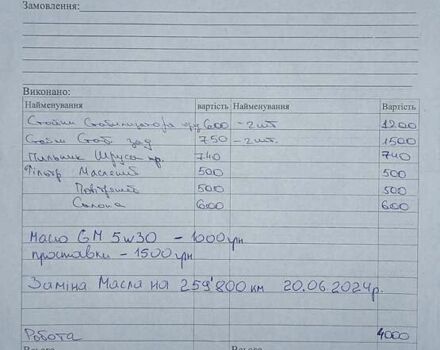 Замовлення:
Виконано:
Найменування вартість Найменування Вартість
Стойки Стабилизатора 600 - 2 шт 1200
Стойки Стаб зад 750 - 2 шт. 1500
Пильник Шруса пр. 740 740
Фільтр Масленій 500 500
Повітряний 500 500
Салона 600 600
Масло GM 5w30 - 1000грн
проставки - 1500грн
Заміна Масла на 259'800 км 20.06.2024р.
Робота 4000
Всього Всього